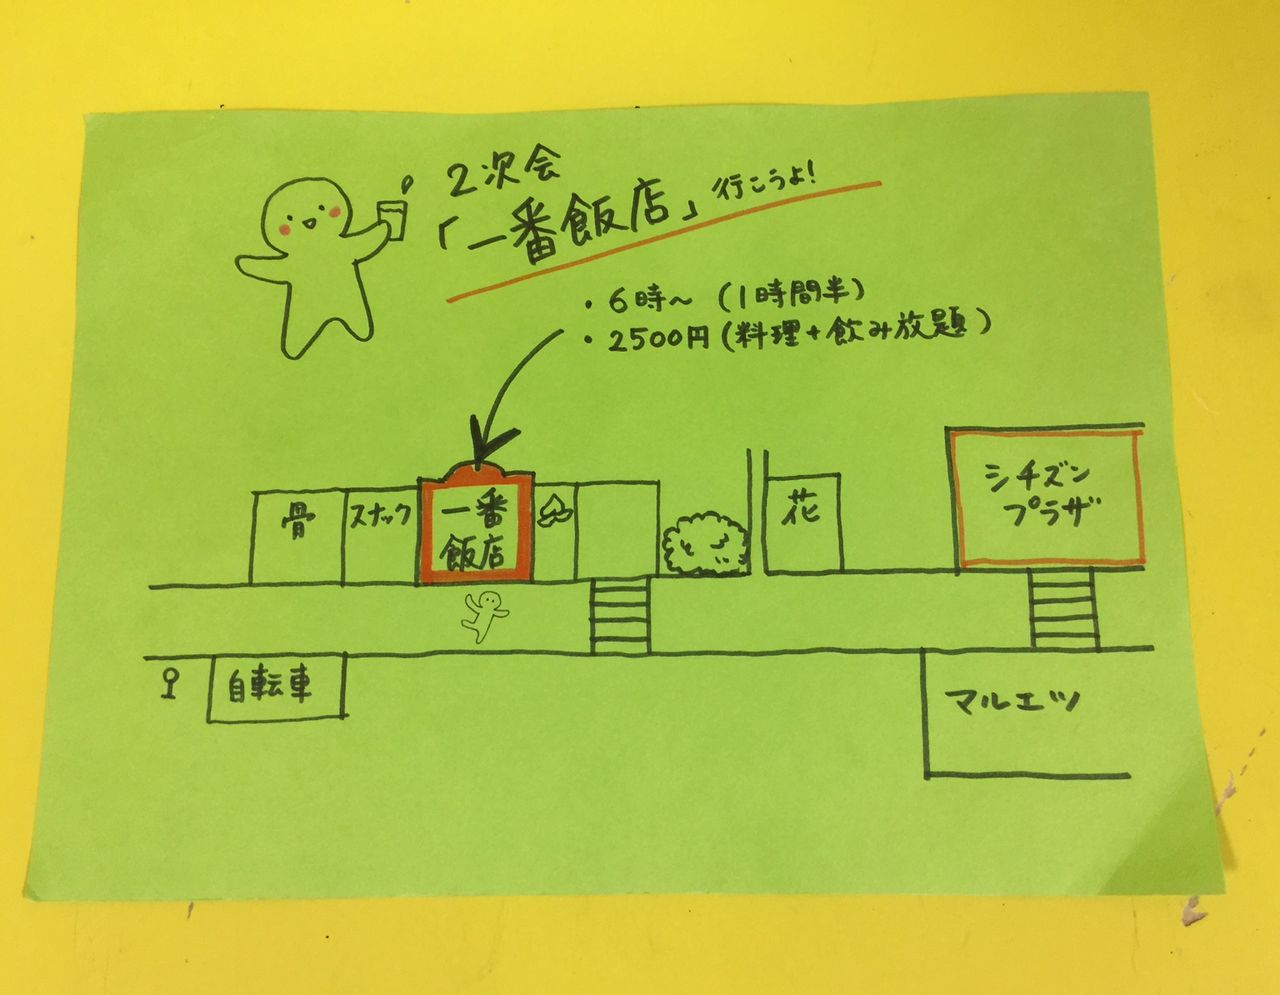 2次会
「一番飯店」行こうよ!
・6時〜(1時間半)
・2500円(料理+飲み放題)
骨
スナック
一番
飯店
花
シチズン
プラザ
自転車
マルエツ